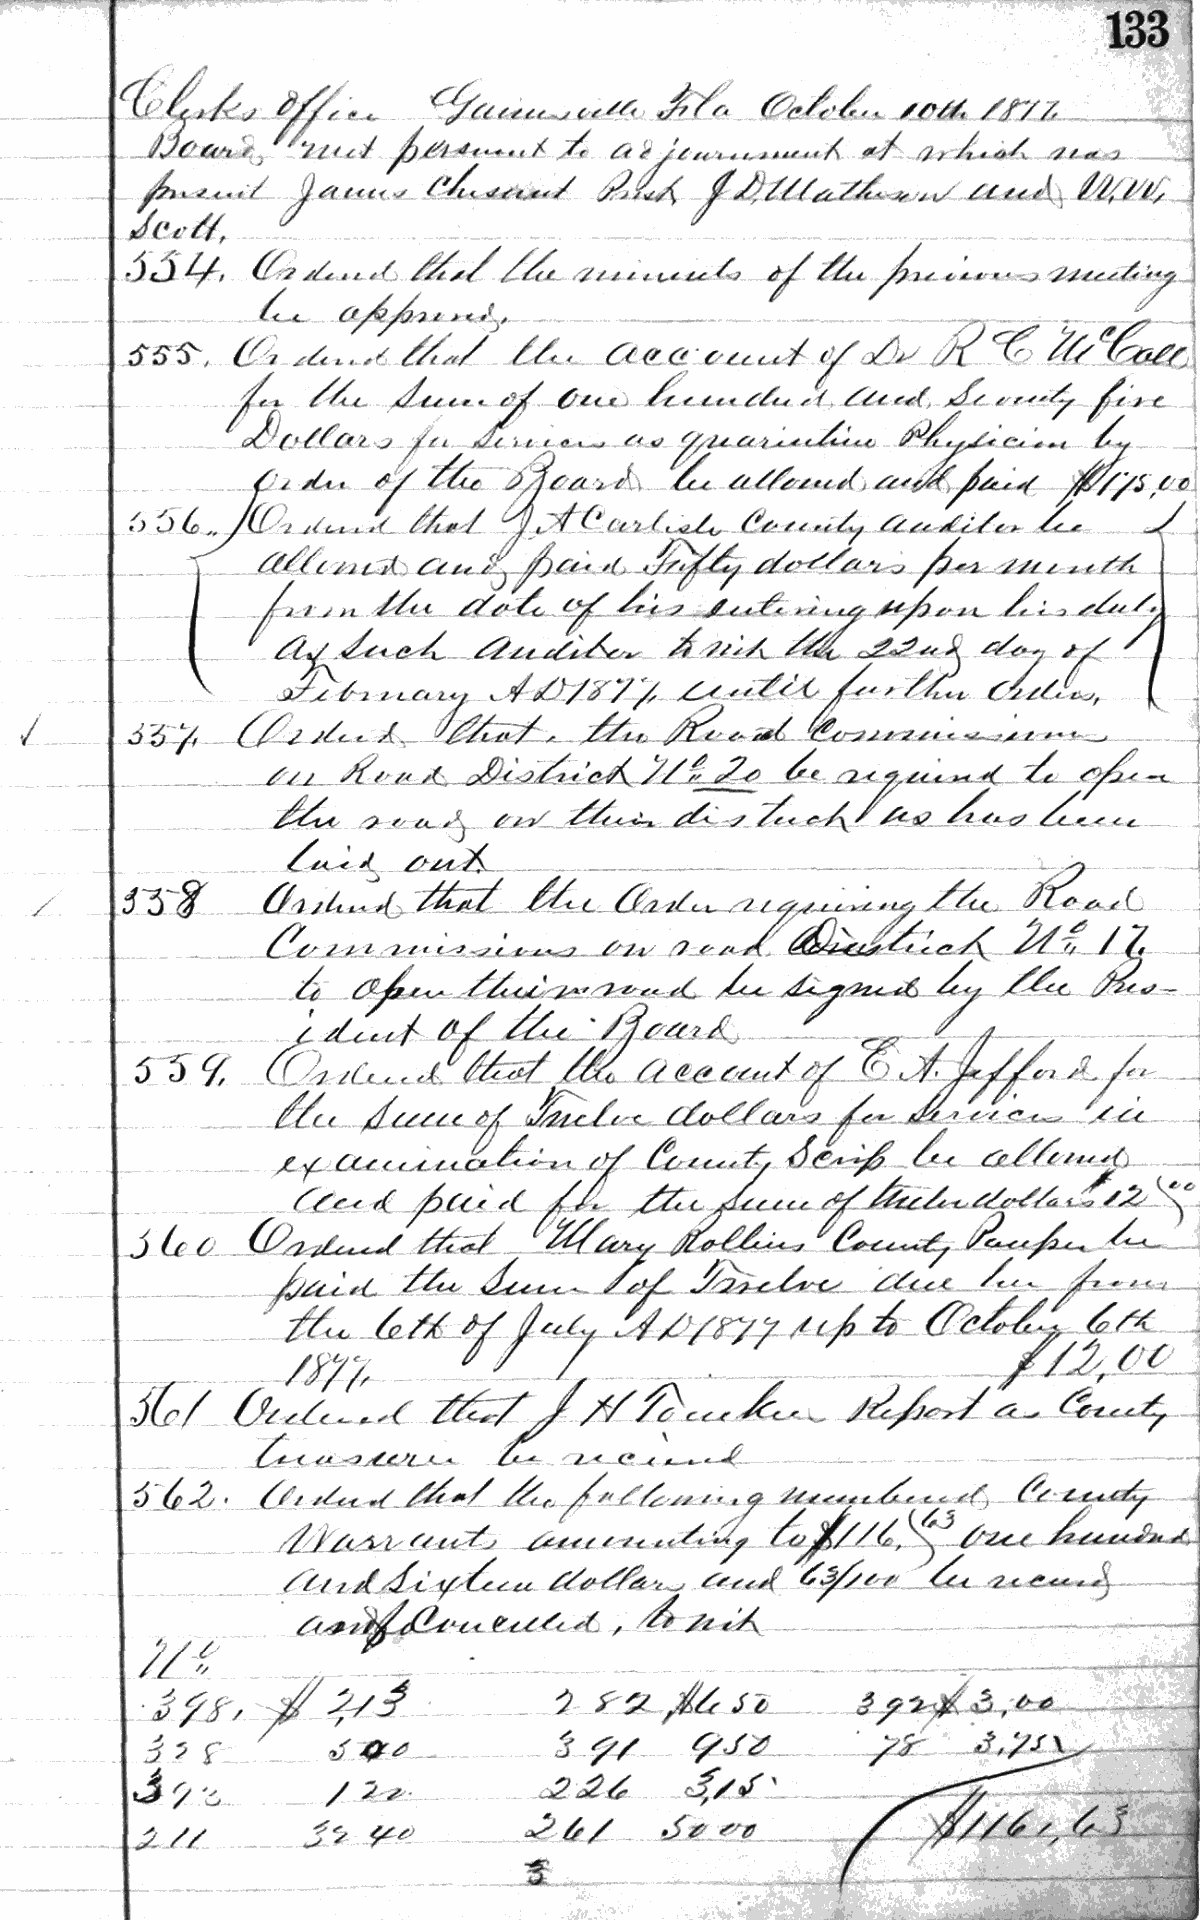 133
Clerks Office Gainesville Fla October 10th 1877
Board met persuant to adjournment at which was
present James Chesnut Prest J D. Matheson and W. W.
Scott.
554. Ordered that the minuets of the previous meeting
be approved.
555. Ordered that the account of Dr R C McCall
for the sum of one hundred and Seventy five
Dollars for services as quarintine Physician by
order of the Board be allowed and paid $175.00
556. Ordered that J A Carlisle County auditor be
allowed and paid Fifty dollars per month
from the date of his entering upon his duty
as such auditor towit the 22nd day of
February AD 1877 until further orders.
557. Ordered that the Road Commissioners
on Road District No. 20 be required to open
the road on their district as has been
laid out.
558 Ordered that the Order requiring the Road
Commissions on road District No. 17
to open their road be signed by the Pres-
ident of the Board
559. Ordered that the account of E A. Jefford for
the sum of Twelve dollars for services in
examination of County Scrip be allowed
and paid for the sum of twelve dollars $12 00
560 Ordered that Mary Rollins County Pauper be
paid the Sum of Twelve due her from
the 6th of July AD 1877 up to October 6th
1877. $12,00
561 Ordered that J H Report as County
treasurer be recieved
562. Ordered that the following numbered County
Warrants amounting to $116. 63 one hundred
and Sixteen dollars and 63/100 be
and Cancelled, to wit
No.
398. $ 2,13 282 $6 50 392 $ 3,00
328 5 00 391 9 50 78 3,75
393 1 22 226 3,15
211 32 40 261 50 00 $116,63
3